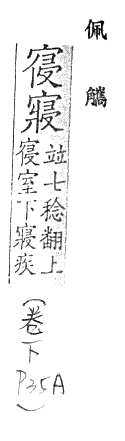 佩觿
寑寢
竝七稔翻上
寑室下寢疾
(卷下
P35A)